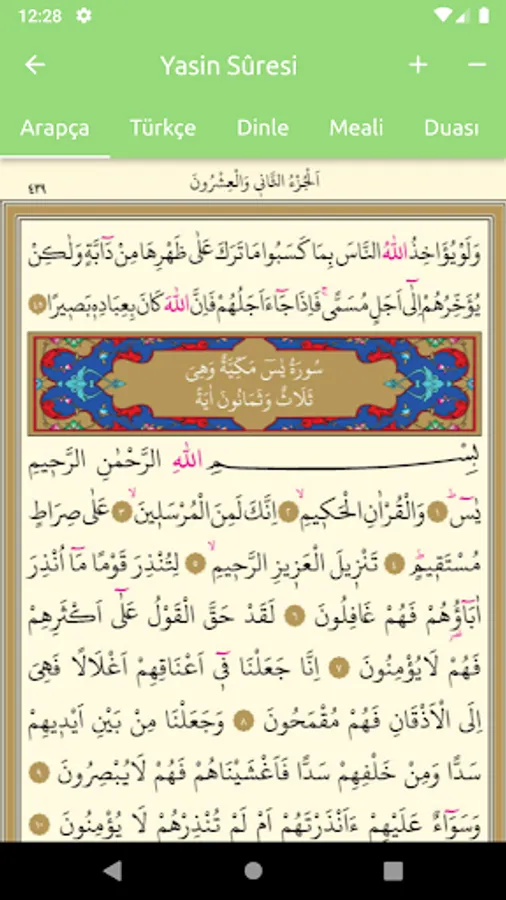 12:28
Yasin Sûresi
Arapça Türkçe Dinle Meali Duası
اَلْجُزْءُ الثَّانِي وَالْعِشْرُونَ ٤٣٩
وَلَوْ يُؤَاخِذُ اللّٰهُ النَّاسَ بِمَا كَسَبُوا مَا تَرَكَ عَلٰى ظَهْرِهَا مِنْ دَٓابَّةٍ وَلٰكِنْ
يُؤَخِّرُهُمْ اِلٰٓى اَجَلٍ مُسَمًّىۚ فَاِذَا جَٓاءَ اَجَلُهُمْ فَاِنَّ اللّٰهَ كَانَ بِعِبَادِه۪ بَص۪يرًا ٤٥
سُورَةُ يٰسٓ مَكِّيَّةٌ وَهِىَ
ثَلَاثٌ وَثَمَانُونَ اٰيَةً
بِسْمِ اللّٰهِ الرَّحْمٰنِ الرَّح۪يمِ
يٰسٓۜ ١ وَالْقُرْاٰنِ الْحَك۪يمِۙ ٢ اِنَّكَ لَمِنَ الْمُرْسَل۪ينَۙ ٣ عَلٰى صِرَاطٍ
مُسْتَق۪يمٍۜ ٤ تَنْز۪يلَ الْعَز۪يزِ الرَّح۪يمِۙ ٥ لِتُنْذِرَ قَوْمًا مَٓا اُنْذِرَ
اٰبَٓاؤُ۬هُمْ فَهُمْ غَافِلُونَ ٦ لَقَدْ حَقَّ الْقَوْلُ عَلٰٓى اَكْثَرِهِمْ
فَهُمْ لَا يُؤْمِنُونَ ٧ اِنَّا جَعَلْنَا ف۪ٓي اَعْنَاقِهِمْ اَغْلَالًا فَهِىَ
اِلَى الْاَذْقَانِ فَهُمْ مُقْمَحُونَ ٨ وَجَعَلْنَا مِنْ بَيْنِ اَيْد۪يهِمْ
سَدًّا وَمِنْ خَلْفِهِمْ سَدًّا فَاَغْشَيْنَاهُمْ فَهُمْ لَا يُبْصِرُونَ ٩
وَسَوَٓاءٌ عَلَيْهِمْ ءَاَنْذَرْتَهُمْ اَمْ لَمْ تُنْذِرْهُمْ لَا يُؤْمِنُونَ ١٠